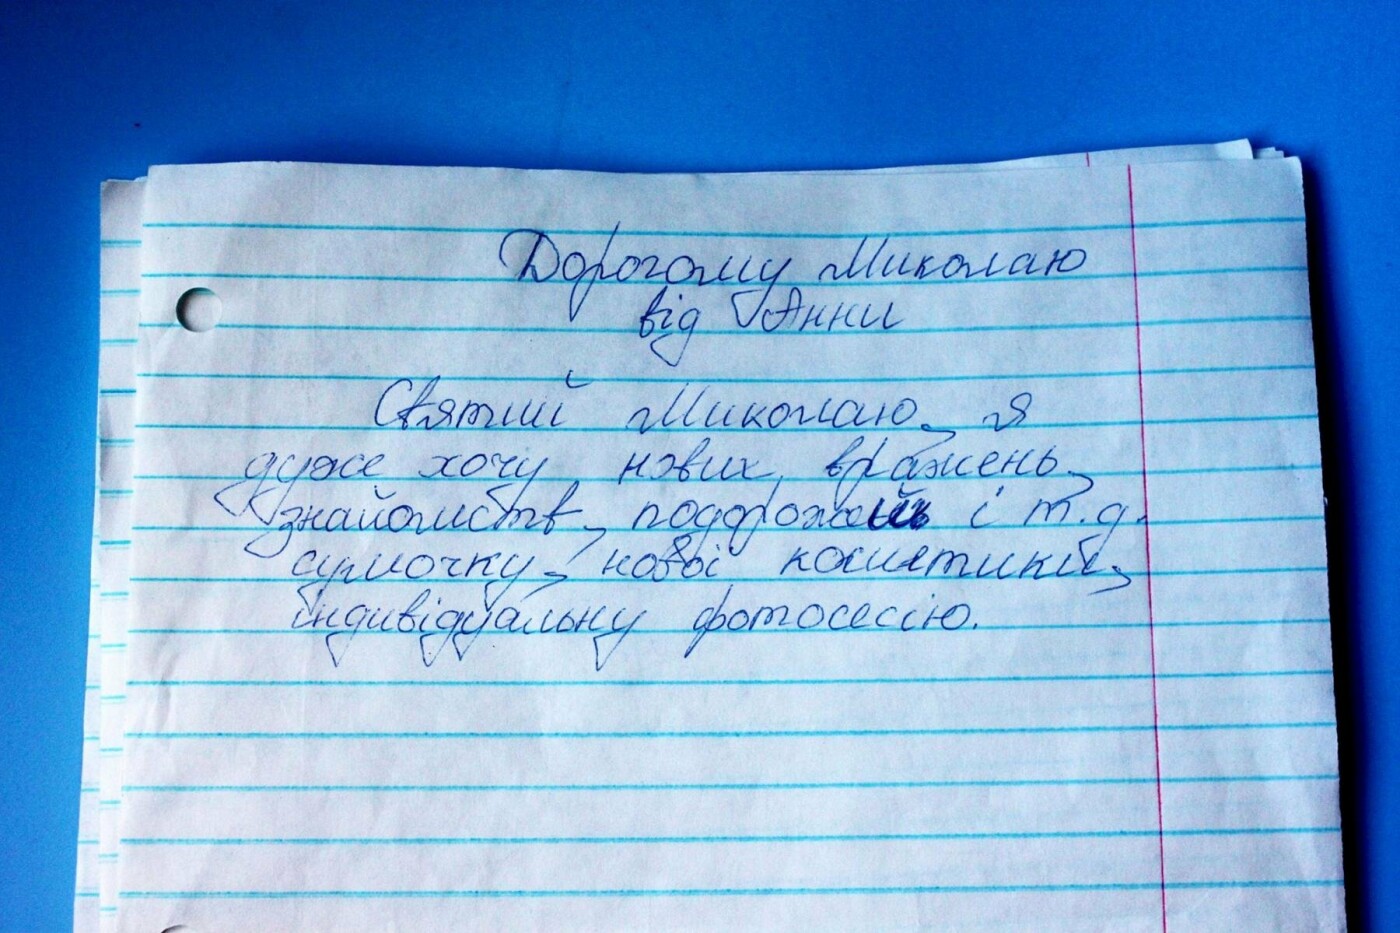 Дорогому Миколаю
від Анни
Святий Миколаю, я
дуже хочу нових вражень,
знайомств, подорожей і т.д.
сумочку, нової косметики,
індивідуальну фотосесію.